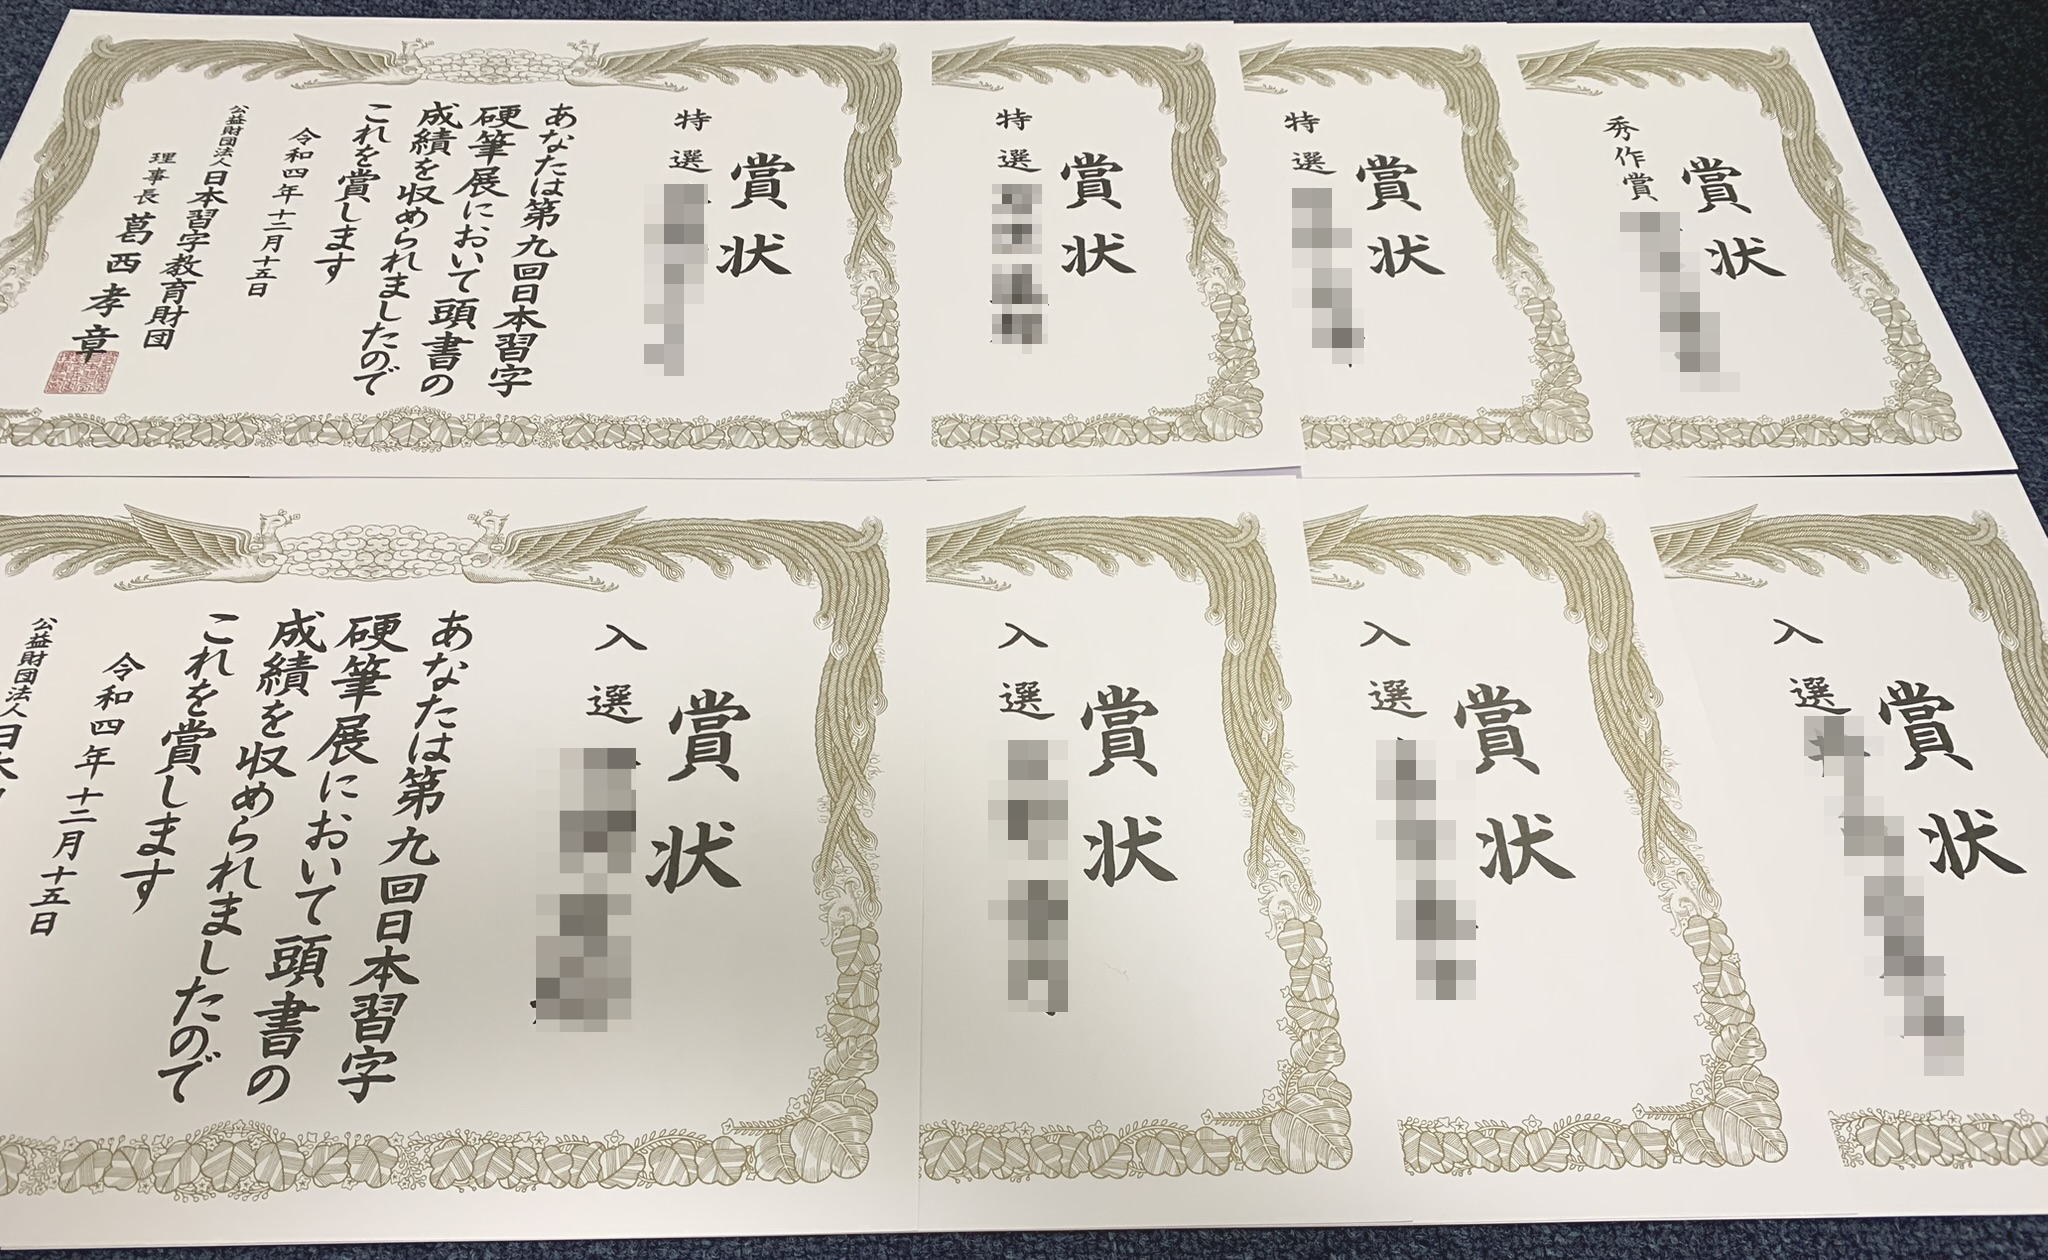 賞状
特選
あなたは第九回日本習字
硬筆展において頭書の
成績を収められましたので
これを賞します
令和四年十二月十五日
公益財団法人日本習字教育財団
理事長 葛西孝章
賞状
特選
賞状
特選
賞状
秀作賞
賞状
入選
あなたは第九回日本習字
硬筆展において頭書の
成績を収められましたので
これを賞します
令和四年十二月十五日
公益財団法人日本
賞状
入選
賞状
入選
賞状
入選